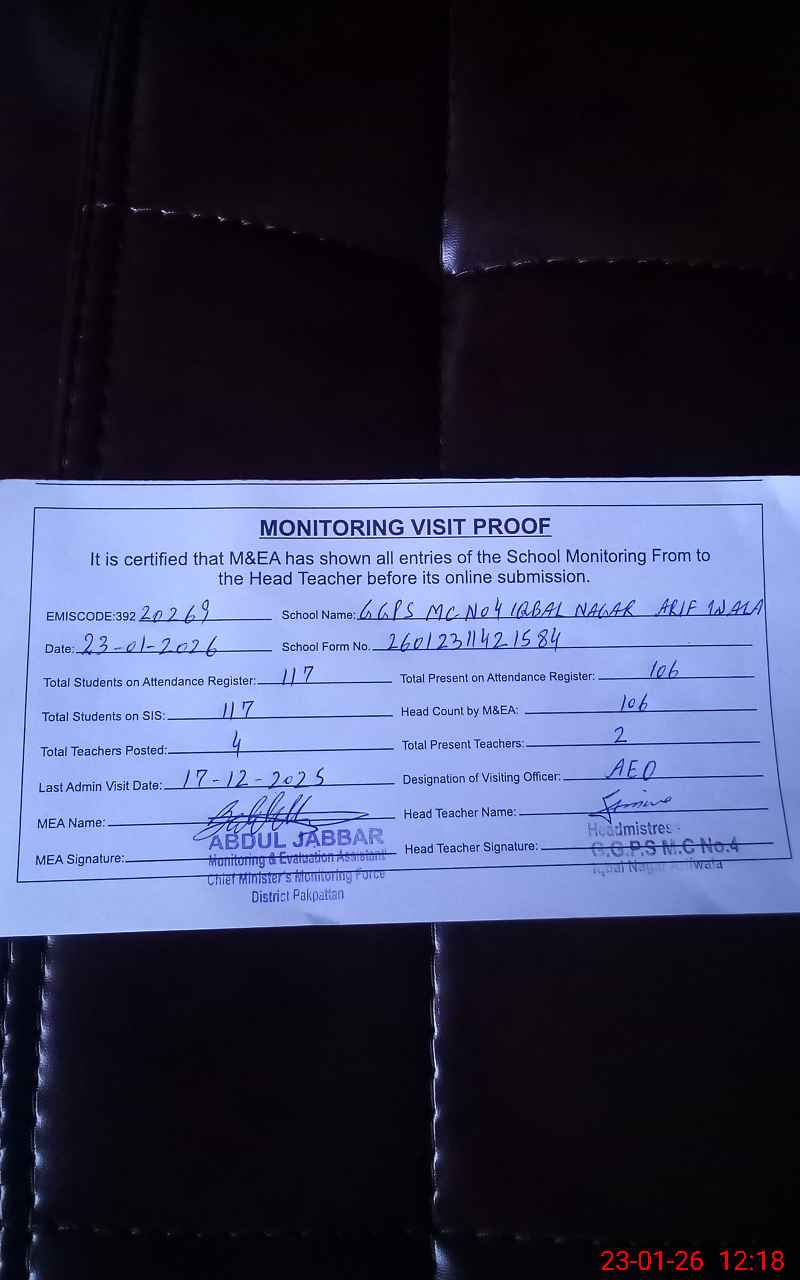 MONITORING VISIT PROOF
It is certified that M&EA has shown all entries of the School Monitoring From to
the Head Teacher before its online submission.
EMISCODE:392 20269 School Name: GGPS MC NO4 IQBAL NAGAR ARIF WALA
Date: 23-01-2026 School Form No. 26012311421584
Total Students on Attendance Register: 117 Total Present on Attendance Register: 106
Total Students on SIS: 117 Head Count by M&EA: 106
Total Teachers Posted: 4 Total Present Teachers: 2
Last Admin Visit Date: 17-12-2025 Designation of Visiting Officer: AEO
MEA Name: Head Teacher Name:
ABDUL JABBAR Headmistres
MEA Signature: Monitoring & Evaluation Assistant Head Teacher Signature: G.G.P.S M.C No.4
Chief Minister's Monitoring Force Iqbal Nagar
District Pakpattan
23-01-26 12:18